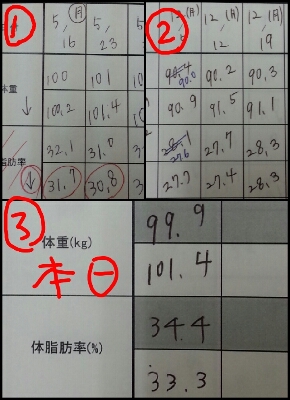 ①
5, (月) 5,
16 23
体重 100 101
↓ 100.2 101.4
脂肪率 32.1 31.0
↓ 31.7 30.8
②
12 (月) 12 (月)
12 19
90.4 90.0 90.2 90.3
90.9 91.5 91.1
28.1 27.6 27.7 28.3
27.7 27.4 28.3
③
体重(kg) 99.9
本日 101.4
34.4
体脂肪率(%)
33.3